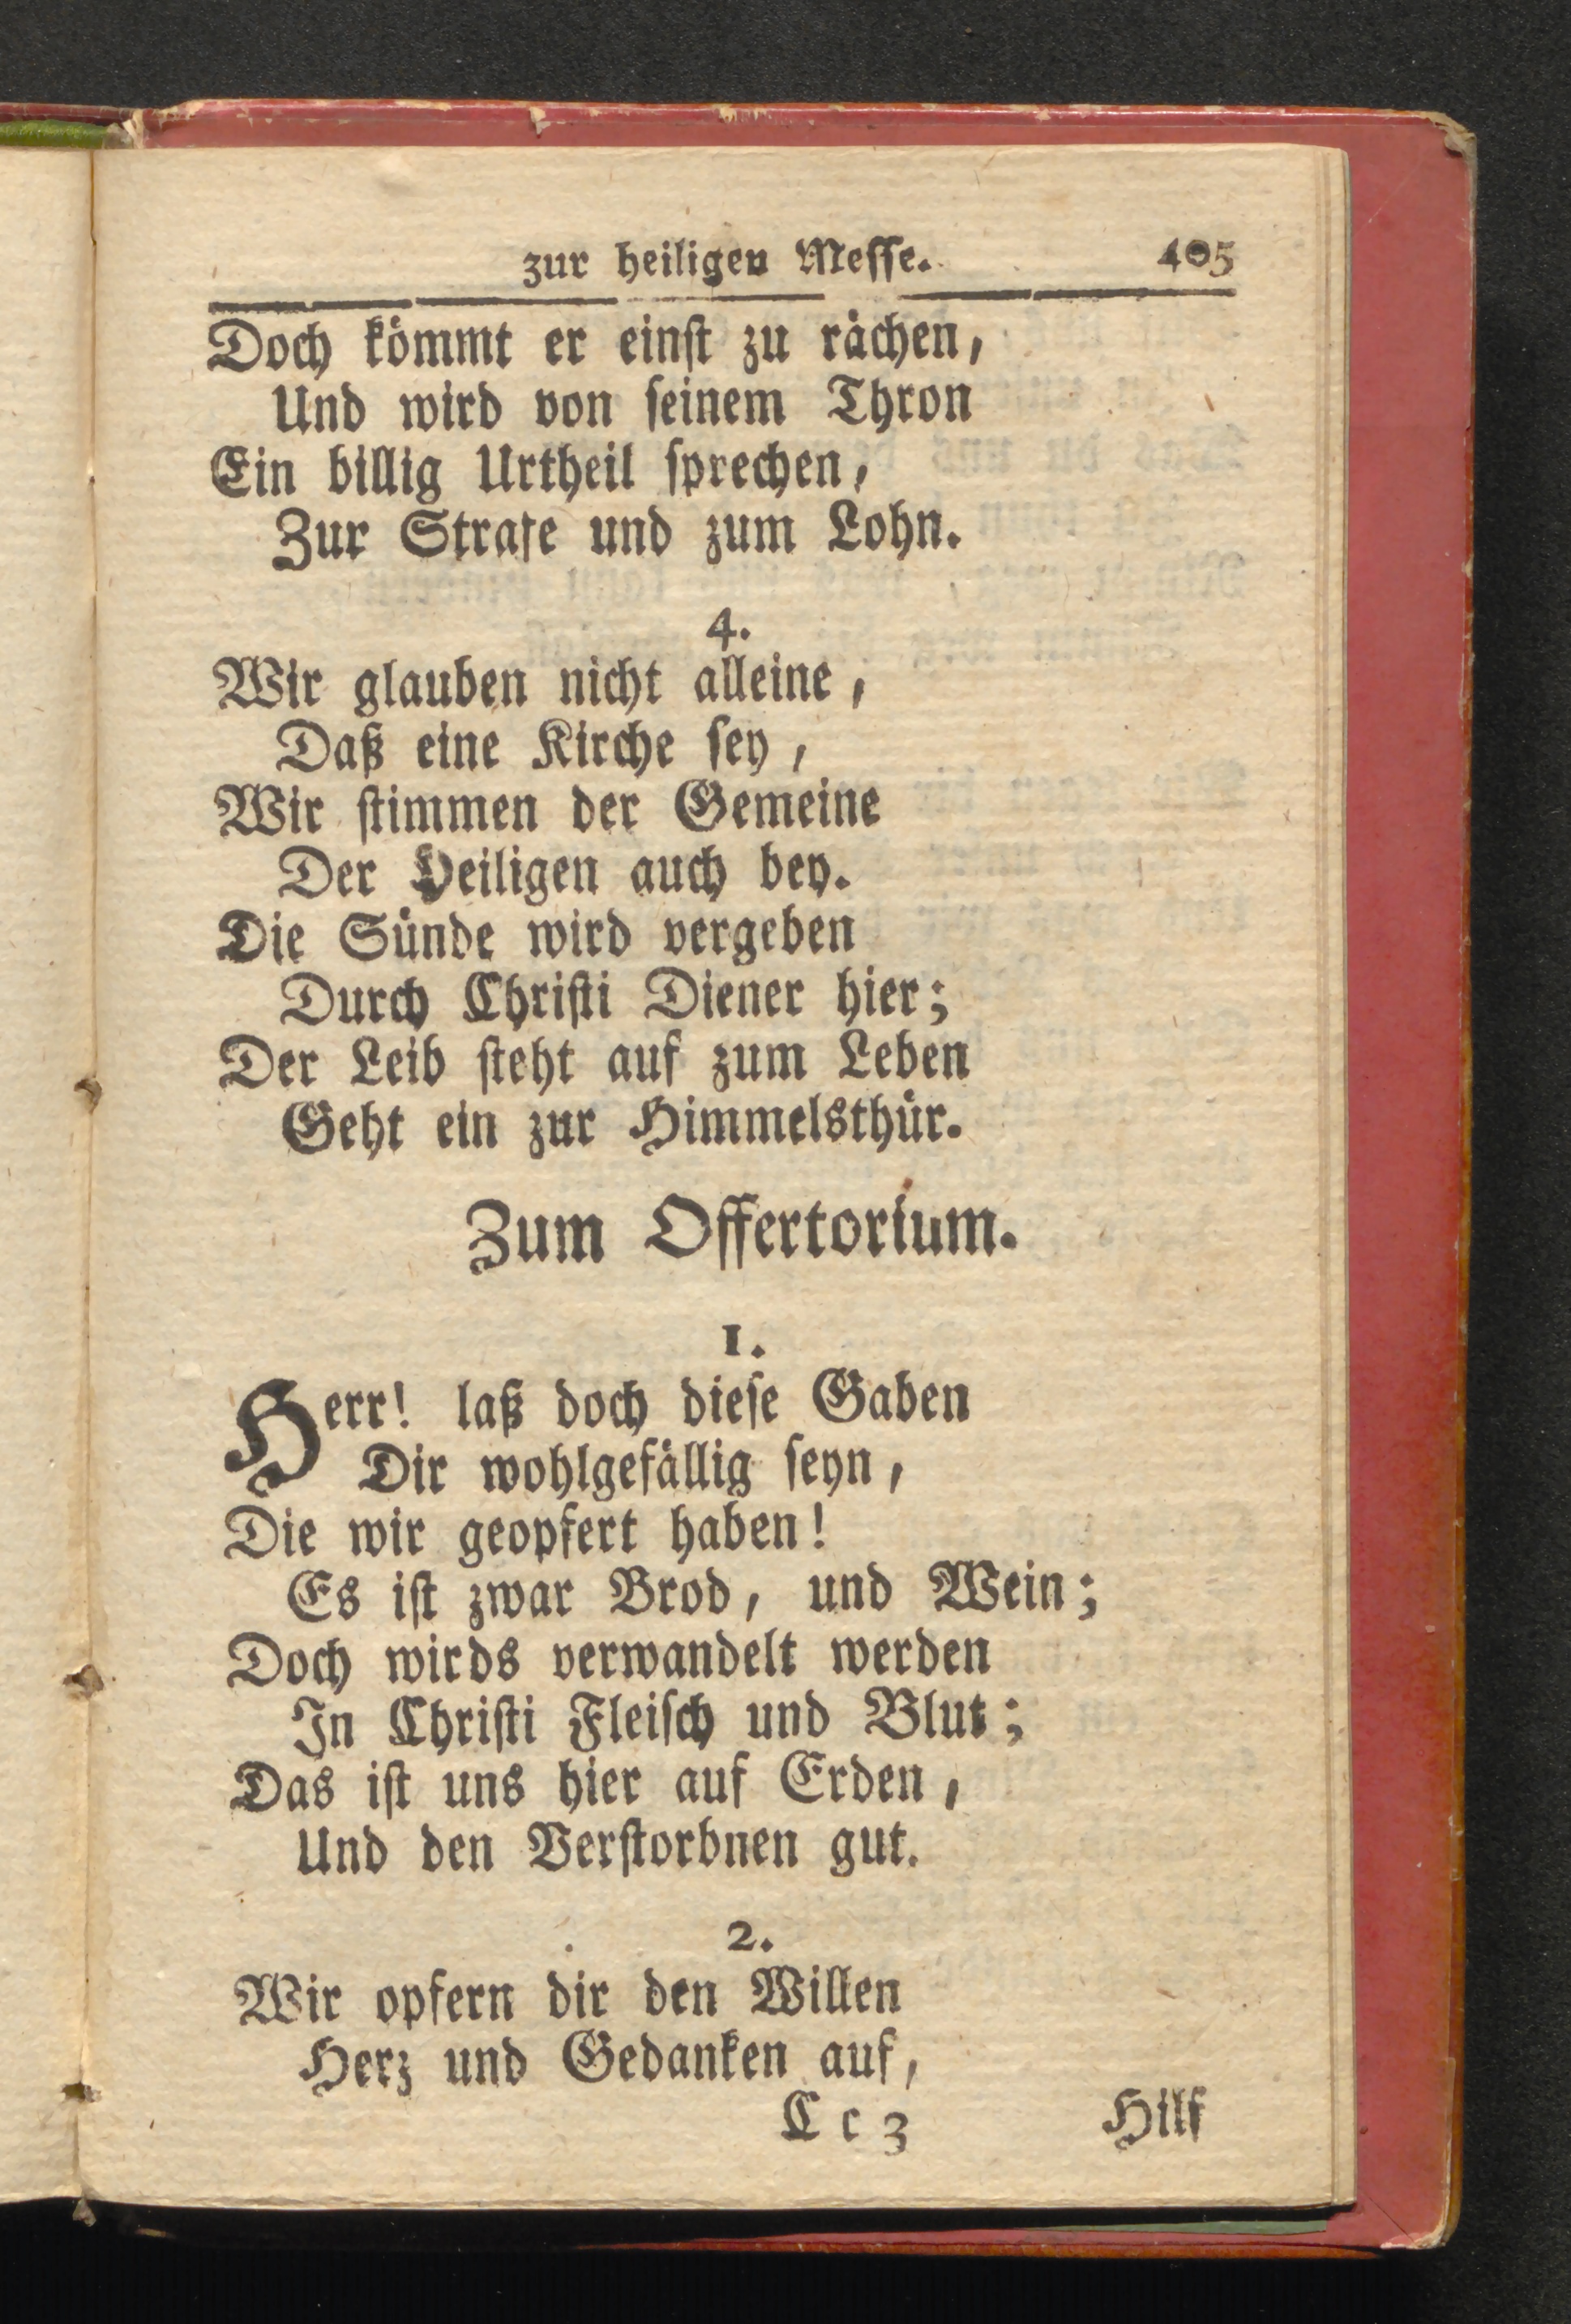 zur heiligen Messe. 405
Doch kömmt er einst zu rächen,
Und wird von seinem Thron
Ein billig Urtheil sprechen,
Zur Strafe und zum Lohn.
4.
Wir glauben nicht alleine,
Daß eine Kirche sey,
Wir stimmen der Gemeine
Der Heiligen auch bey.
Die Sünde wird vergeben
Durch Christi Diener hier;
Der Leib steht auf zum Leben
Geht ein zur Himmelsthür.
Zum Offertorium.
1.
Herr! laß doch diese Gaben
Dir wohlgefällig seyn,
Die wir geopfert haben!
Es ist zwar Brod, und Wein;
Doch wirds verwandelt werden
In Christi Fleisch und Blut;
Das ist uns hier auf Erden,
Und den Verstorbnen gut.
2.
Wir opfern dir den Willen
Herz und Gedanken auf,
C c 3 Hilf